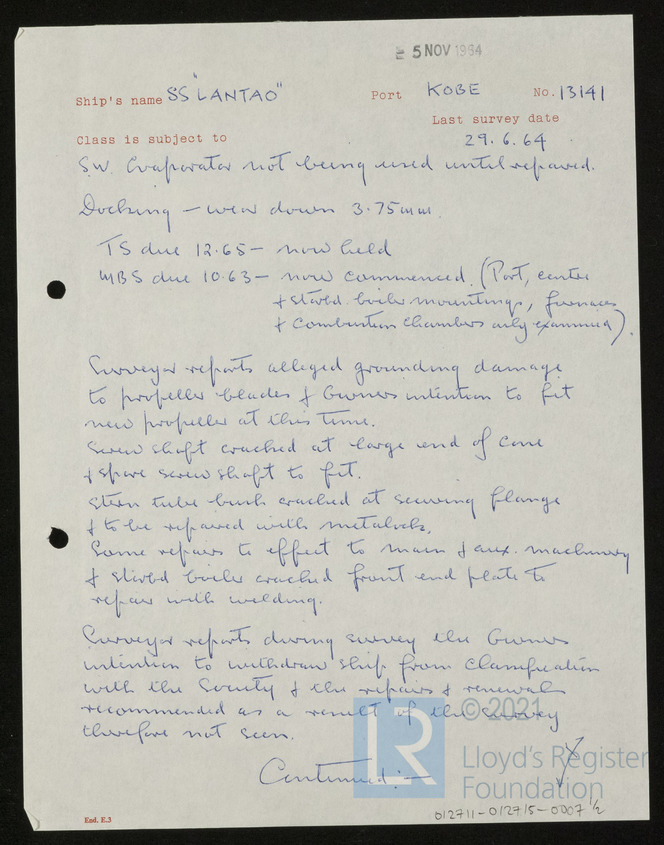 5 NOV 1964
Ship's name SS "LANTAO" Port KOBE No. 13141
Last survey date
Class is subject to 29.6.64
S.W. Evaporator not being used until repaired.
Docking — wear down 3.75mm.
TS due 12.65 — now held
MBS due 10.63 — now commenced. (Port, centre
& starbd. boiler mountings, furnaces
& combustion chambers only examined).
Surveyor reports alleged grounding damage
to propeller blades & Owners intention to fit
new propeller at this time.
Screw shaft cracked at large end of cone
& spare screw shaft to fit.
Stern tube bush cracked at securing flange
& to be repaired with metalock.
Some repairs to effect to main & aux. machinery
& starbd boiler cracked front end plate to
repair with welding.
Surveyor reports during survey the Owners
intention to withdraw ship from Classification
with the Society & the repairs & renewals
recommended as a result of the survey
therefore not seen.
Continued :—
End. E.3
012711-012715-0007 ½
LR
© 2021
Lloyd's Register
Foundation